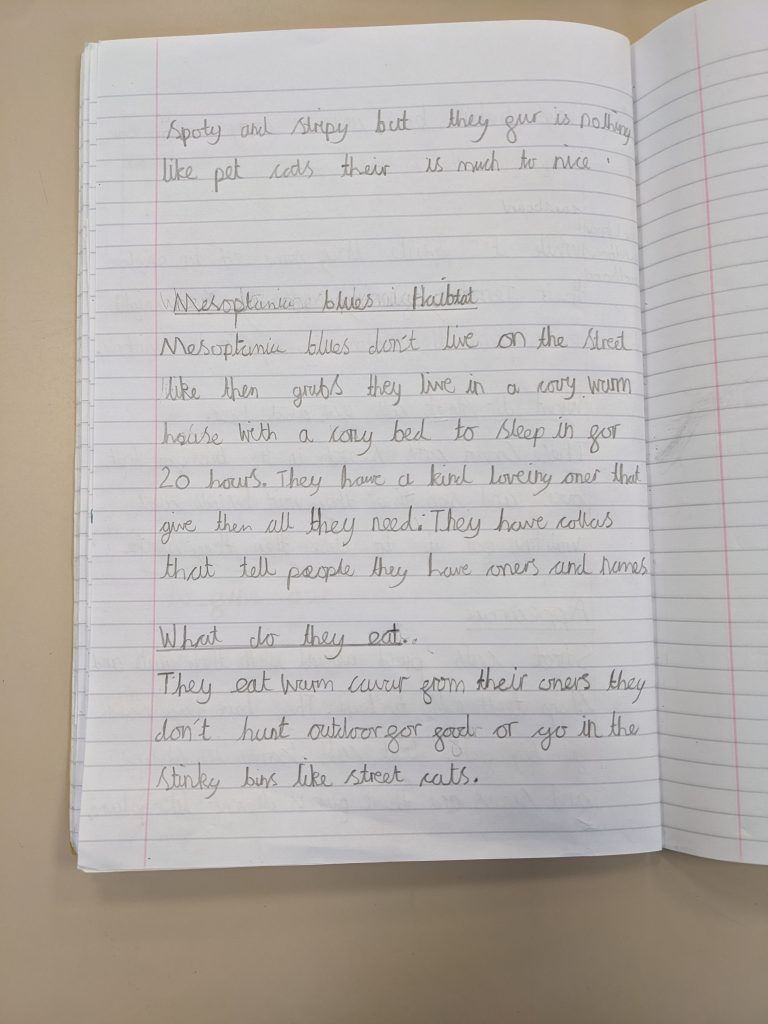 Spoty and stripy but they gur is nothing
like pet cats their is much to nice.
Mesoptamia blues Haibtat
Mesoptamia blues don't live on the street
like then grubs they live in a cozy warm
house with a cozy bed to sleep in for
20 hours. They have a kind loveing oner that
give then all they need. They have collas
that tell people they have oners and names
What do they eat..
They eat warm cavar from their oners they
don't hunt outdoor for food or go in the
stinky bins like street cats.